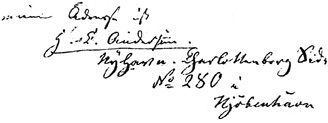 mein Adresse ist
H. C. Andersen.
Nyhavn. Charlottenborg Side
No 280 i
Kjöbenhavn